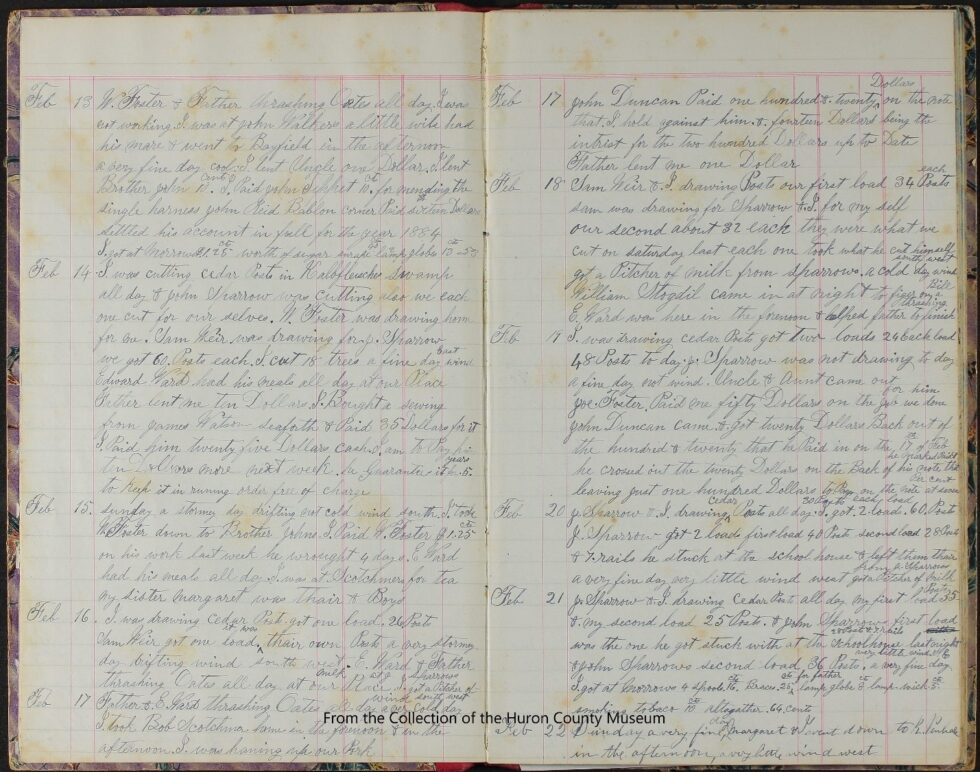 Feb 13 W. Foster & Father thrashing Oates all day I was
not working. I was at john Walkers a little while had
his mare & went to Bayfield in the afternoon
a very fine day cool. I lent Uncle one Dollar. I lent
Brother john 10. I Paid john 10 ct for mending the
single harness john Reid Bablon corner Paid sixteen Dollars
settled his account in full for the year 1884
I got at Morrows 25 cts worth of sugar lamp globe
Feb 14 I was cutting cedar Posts in Kalbfleuches swamp
all day & john Sparrow was cutting also we each
one cut for our selves. W. Foster was drawing home
for me. Sam Weir was drawing for j. Sparrow
we got 60 Posts each. I cut 18 trees a fine day east wind
Edward Ward had his meals all day at our Place
Father lent me ten Dollars. I Bought a sewing
from james Watson seaforth & Paid 35 Dollars for it
I Paid him twenty five Dollars cash. I am to Pay him
ten Dollars more next week. he Guarantee it 5 years
to keep it in runing order free of charge
Feb 15. sunday a stormy day drifting not cold wind south. I took
W. Foster down to Brother Johns. I Paid W. Foster $1.25 cts
on his work last week he wrought 4 days. E. Ward
had his meals all day I was at Scotchmers for tea
my sister Margaret was thair & Boys
Feb 16. I was drawing cedar Post got one load. 26 Posts
Sam Weir got one load thair own Post a very stormy
day drifting wind south west. E. Ward & Father
thrashing Oates all day at our Place. I got a Pitcher of milk at j Sparrows
Feb 17 Father & E. Ward thrashing Oates all day a very cold day south west
I took Bob Scotchmer home in the forenoon & in the
afternoon. I was
Feb 17 john Duncan Paid one hundred & twenty Dollars on the note
that I hold against him. & fourteen Dollars being the
intrist for the two hundred Dollars up to Date
Father lent me one Dollar
Feb 18 Sam Weir & I drawing Posts our first load 34 Posts each
sam was drawing for Sparrow & I for my self
our second about 32 each they were what we
cut on saturday last each one took what he cut himself
got a Pitcher of milk from Sparrows. a cold day south west wind
William Stogdil came in at night to
E. Ward was here in the forenoon & helped father to finish thrashing
Feb 19 I was drawing cedar Posts got two loads 24 Each load
48 Posts to day. j. Sparrow was not drawing to day
a fine day not wind. Uncle & Aunt came out
joe Foster Paid me fifty Dollars on the job we done for him
john Duncan came & got twenty Dollars Back out of
the hundred & twenty that he Paid in on the 17th of Feb
he crosed out the twenty Dollars on the Back of his note
leaving just one hundred Dollars to Pay on the note at seven Per cent
Feb 20 j. Sparrow & I drawing cedar Posts all day. I got 2 loads. 60 Posts 30 Posts each load
J. Sparrow got 2 loads first load 40 Post second load 28 Post
& 7 rails he stuck at the school house & left them thair
a very fine day very little wind west got a Pitcher of Milk from j. Sparrows
Feb 21 j. Sparrow & I drawing cedar Post all day my first load 35 Posts
& my second load 25 Post. & john Sparrows first load
was the one he got stuck with at the Schoolhouse last night
& john Sparrows second load 36 Posts. a very fine day very little wind
I got at Morrows 4 spools 16. Braces 25 cts for father lamp globe & lamp wick
smoking tobaco altogather .64 cents
Feb 22 Sunday a very fine day Margaret & I went down to
in the afternoon, a very little wind west
From the Collection of the Huron County Museum